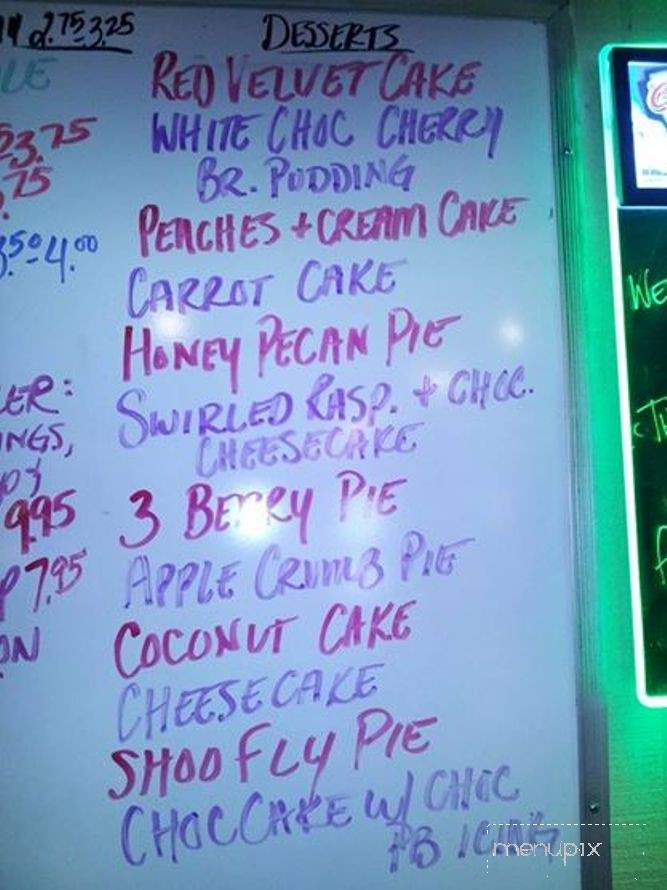 2.75 3.25
DESSERTS
RED VELVET CAKE
WHITE CHOC CHERRY
BR. PUDDING
PEACHES + CREAM CAKE
CARROT CAKE
HONEY PECAN PIE
SWIRLED RASP. + CHOC.
CHEESECAKE
3 BERRY PIE
APPLE CRUMB PIE
COCONUT CAKE
CHEESECAKE
SHOO FLY PIE
CHOC CAKE W/ CHOC
PB ICING
3.75
.75
3.50 4.00
ER:
INGS,
9.95
7.95
ON
WE
menupix